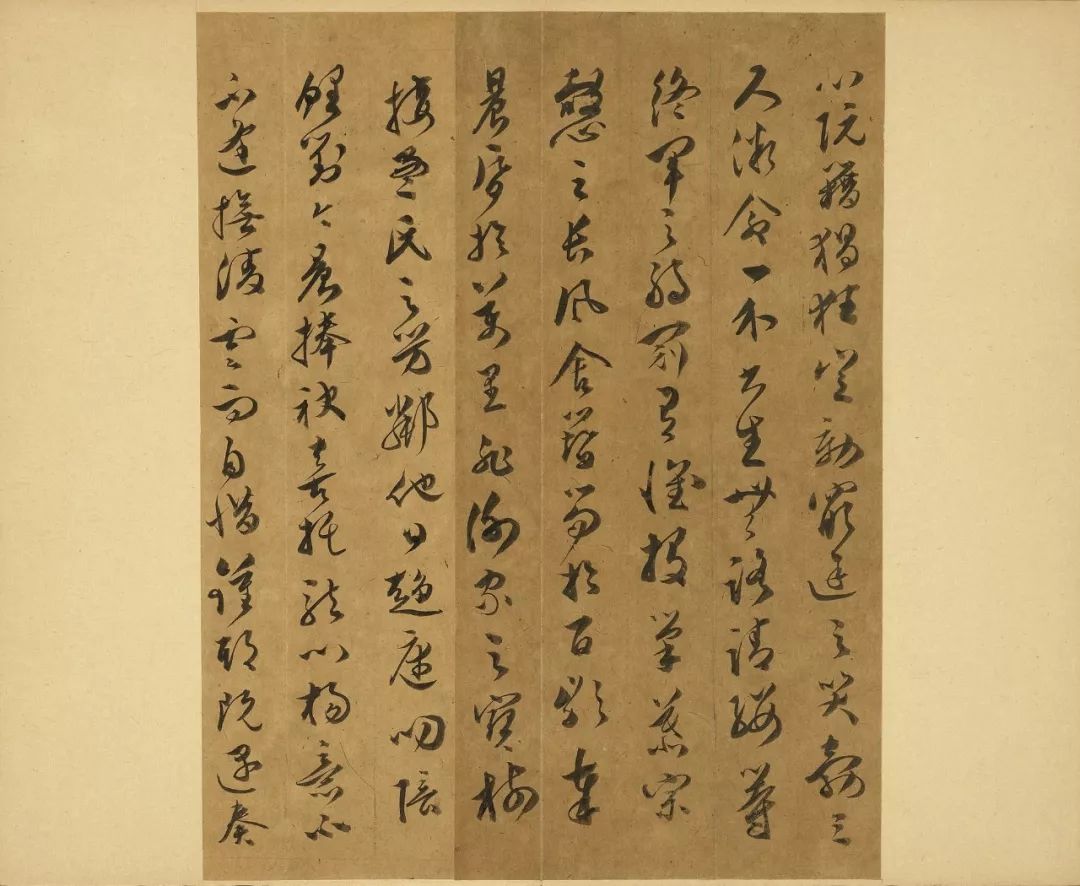 心阮籍猖狂豈効窮途之哭勃三
尺微命一介書生無路請纓等
終軍之弱冠有懷投筆慕宗
愨之長風舍簪笏於百齡奉
晨昏於萬里非謝家之寶樹
接孟氏之芳鄰他日趨庭叨陪
鯉對今晨捧袂喜托龍門楊意不
不逢撫凌雲而自惜鍾期既遇奏